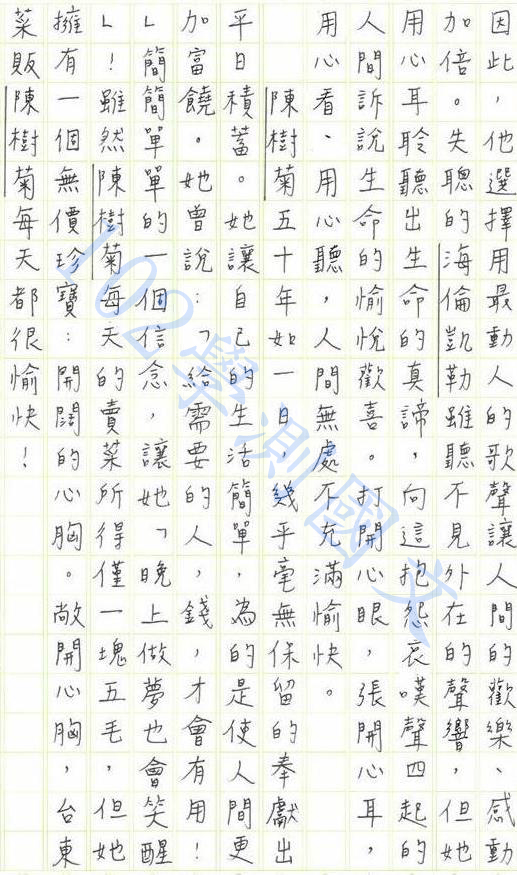 因此,他選擇用最動人的歌聲讓人間的歡樂、感動
加倍。失聰的海倫凱勒雖聽不見外在的聲響,但她
用心耳聆聽出生命的真諦,向這抱怨哀嘆聲四起的
人間訴說生命的愉悅歡喜。打開心眼,張開心耳,
用心看、用心聽,人間無處不充滿愉快。
陳樹菊五十年如一日,幾乎毫無保留的奉獻出
平日積蓄。她讓自己的生活簡單,為的是使人間更
加富饒。她曾說:「給需要的人,錢,才會有用!
」簡簡單單的一個信念,讓她「晚上做夢也會笑醒
」!雖然陳樹菊每天的賣菜所得僅一塊五毛,但她
擁有一個無價珍寶:開闊的心胸。敞開心胸,台東
菜販陳樹菊每天都很愉快!
102學測國文